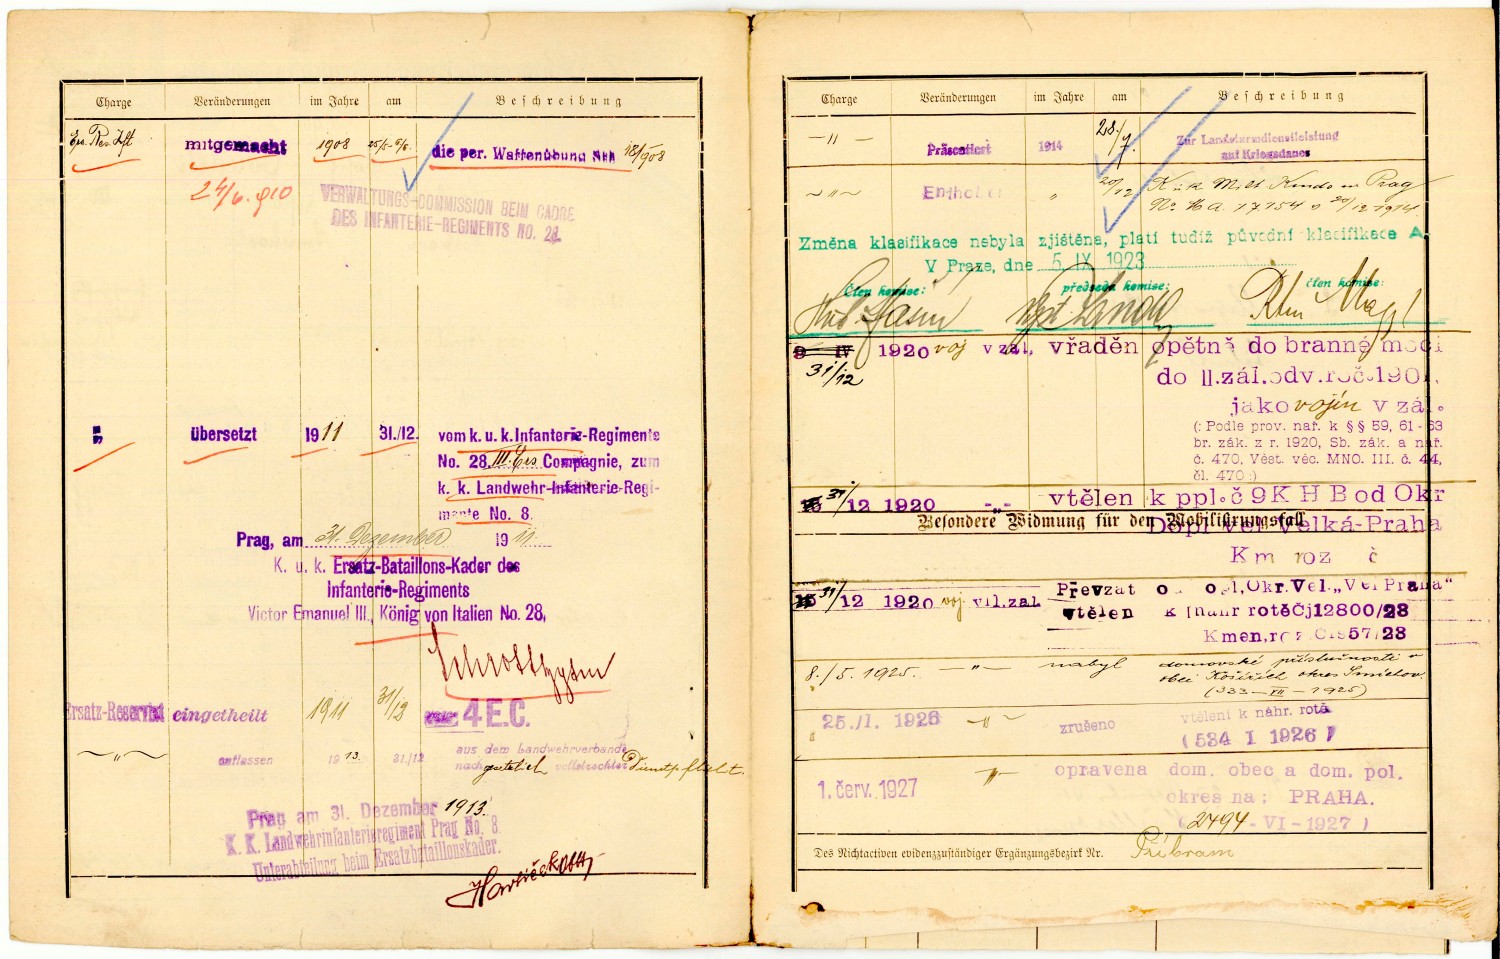 Charge Veränderungen im Jahre am Beschreibung
Ers. Res. Ift mitgemacht 1908 die per. Waffenübung 18/1908
24/6. 910
VERWALTUNGS-COMMISSION BEIM CADRE
DES INFANTERIE-REGIMENTS NO. 28.
" übersetzt 1911 31./12. vom k. u. k. Infanterie-Regiments
No. 28 III. Ers Compagnie, zum
k. k. Landwehr-Infanterie-Regi-
mente No. 8.
Prag, am 31. Dezember 1911.
K. u. k. Ersatz-Bataillons-Kader des
Infanterie-Regiments
Victor Emanuel III., König von Italien No. 28,
Ersatz-Reservist eingetheilt 1911 31/12 4 E.C.
" entlassen 1913. 31/12 aus dem Landwehrverbande
nach gesetzlich vollstreckter Dienstpflicht.
Prag am 31. Dezember 1913.
K. K. Landwehrinfanterieregiment Prag No. 8.
Unterabteilung beim Ersatzbataillonskader.
Charge Veränderungen im Jahre am Beschreibung
" Präsentiert 1914 28./7. Zur Landsturmdienstleistung
auf Kriegsdauer
" " 20/12 K. u. k. Milt. Kmdo in Prag
No. 17154 v 20/12 1914.
Změna klasifikace nebyla zjištěna, platí tudíž původní klasifikace A.
V Praze, dne 5. IX. 1923
Člen komise: předseda komise: člen komise:
9 IV 1920 voj v zál. vřaděn opětně do branné moci
31/12 do II. zál. odv. roč. 190
jako vojín v zál.
(: Podle prov. nař. k §§ 59, 61-63
br. zák. z r. 1920, Sb. zák. a nař.
č. 470, Věst. věc. MNO. III. č. 44,
čl. 470 :)
15 31/12 1920 -„- vtělen k ppl. č 9 K H B od Okr
Besondere Widmung für den Mobilisierungsfall
Dopl vel Velká-Praha
Km roz č
15 31/12 1920 voj. v II. zál Převzat Okr. Vel. „Vel Praha"
vtělen k náhr rotě Čj 12800/28
Kmen. roz. 57/28
8./5. 1925. —"— nabyl domovské příslušnosti v
obci Košířích okres Smíchov.
(333 — VII — 1925)
25./I. 1926 —"— zrušeno vtělení k náhr. rotě
(534 I 1926)
1. červ. 1927 —"— opravena dom. obec a dom. pol.
okres na: PRAHA.
(2494 - VI - 1927)
Des Nichtaktiven evidenzzuständiger Ergänzungsbezirk Nr. Příbram